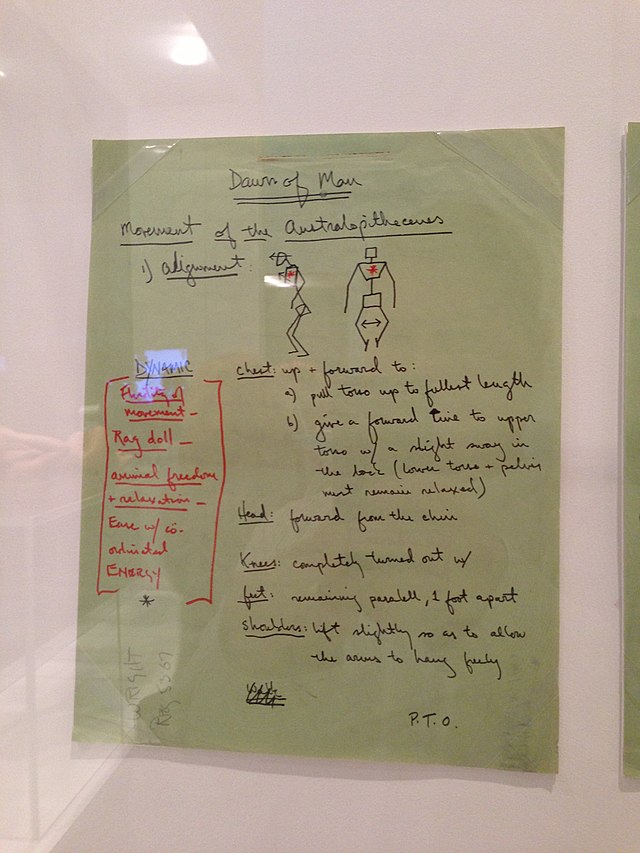 Dawn of Man
Movement of the Australopithecenes
1) alignment:
DYNAMIC
Fluidity of
movement –
Rag doll –
animal freedom
+ relaxation –
Ease w/ co-
ordinated
ENERGY
*
chest: up + forward to:
a) pull torso up to fullest length
b) give a forward line to upper
torso w/ a slight sway in
the back (lower torso + pelvis
must remain relaxed)
Head: forward from the chin
Knees: completely turned out w/
feet: remaining paralell, 1 foot apart
shoulders: lift slightly so as to allow
the arms to hang freely
P.T.O.
WRIGHT